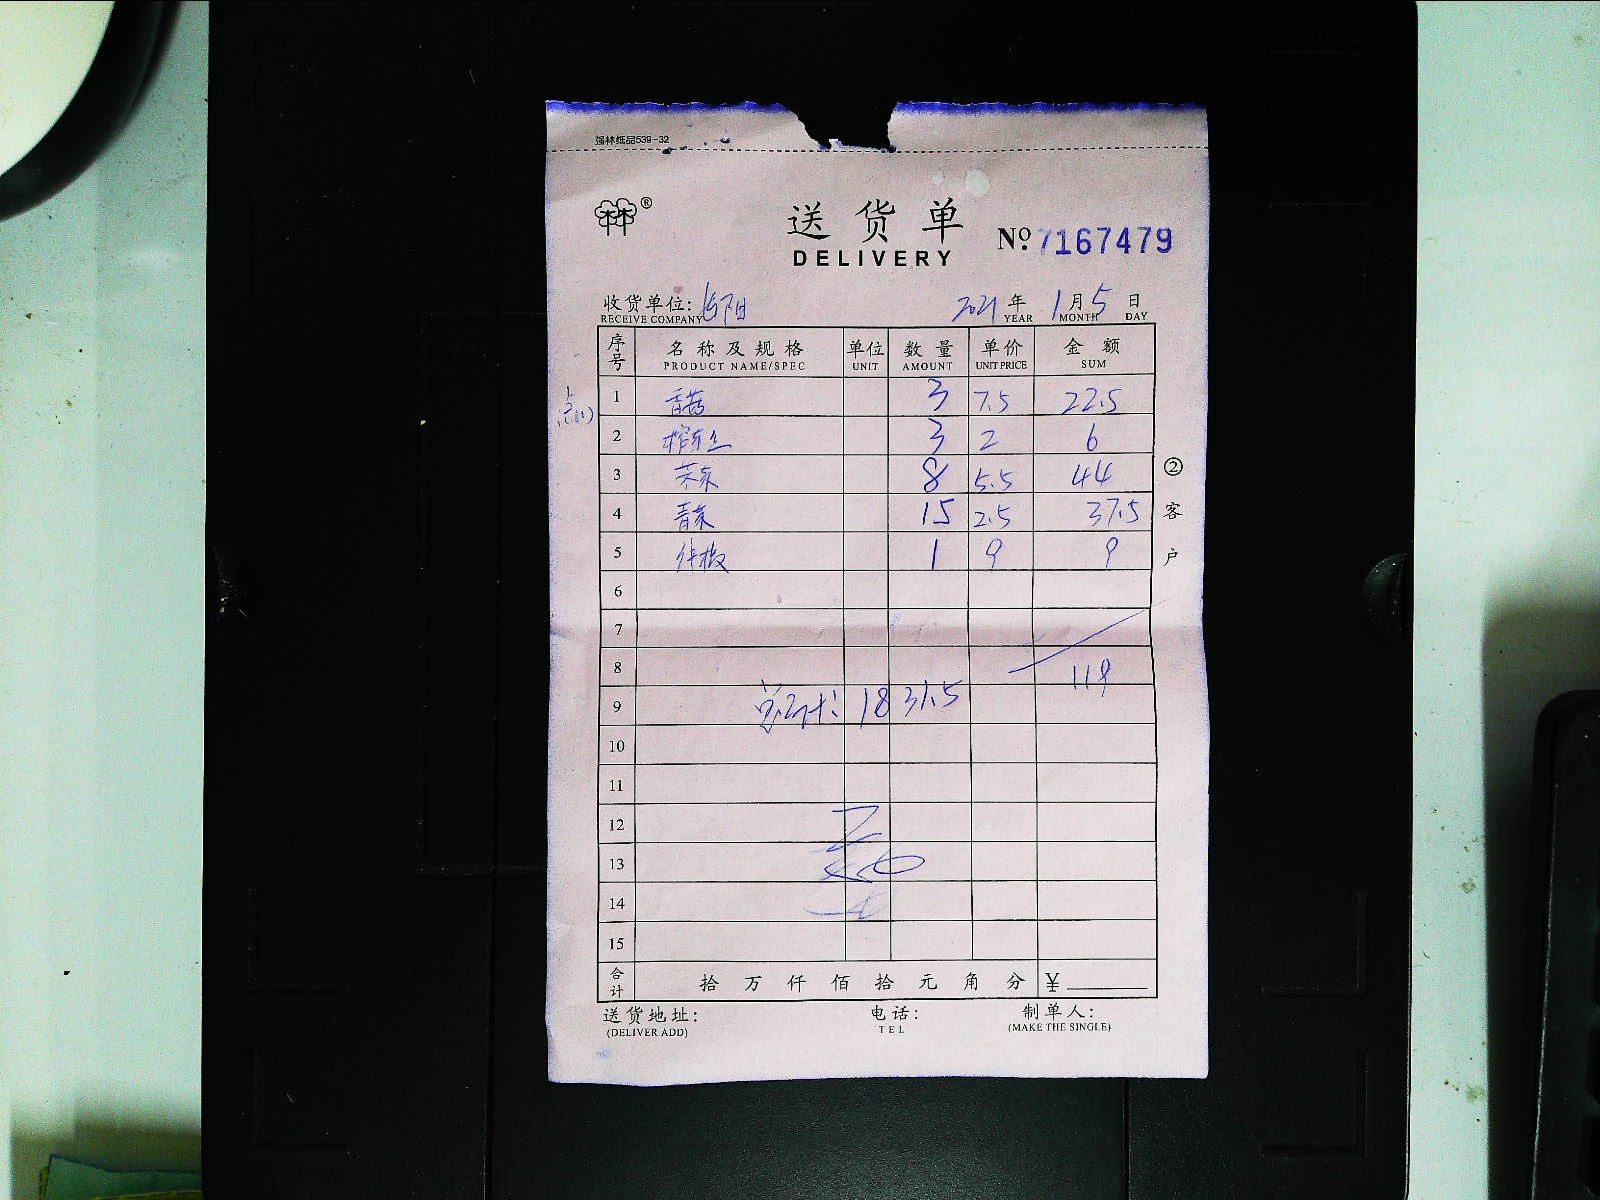 强林纸品539-32
林林®
送货单
DELIVERY
№ 7167479
收货单位: 2021年 1月 5日
RECEIVE COMPANY YEAR MONTH DAY
序号 名称及规格 单位 数量 单价 金额
PRODUCT NAME/SPEC UNIT AMOUNT UNIT PRICE SUM
1 香菇 3 7.5 22.5
2 榨菜丝 3 2 6
3 8 5.5 44
4 青菜 15 2.5 37.5
5 1 9 9
6
7
8 119
9 总计: 1831.5
10
11
12
13
14
15
合计 拾万仟佰拾元角分 ¥
送货地址: 电话: 制单人:
(DELIVER ADD) TEL (MAKE THE SINGLE)
②客户